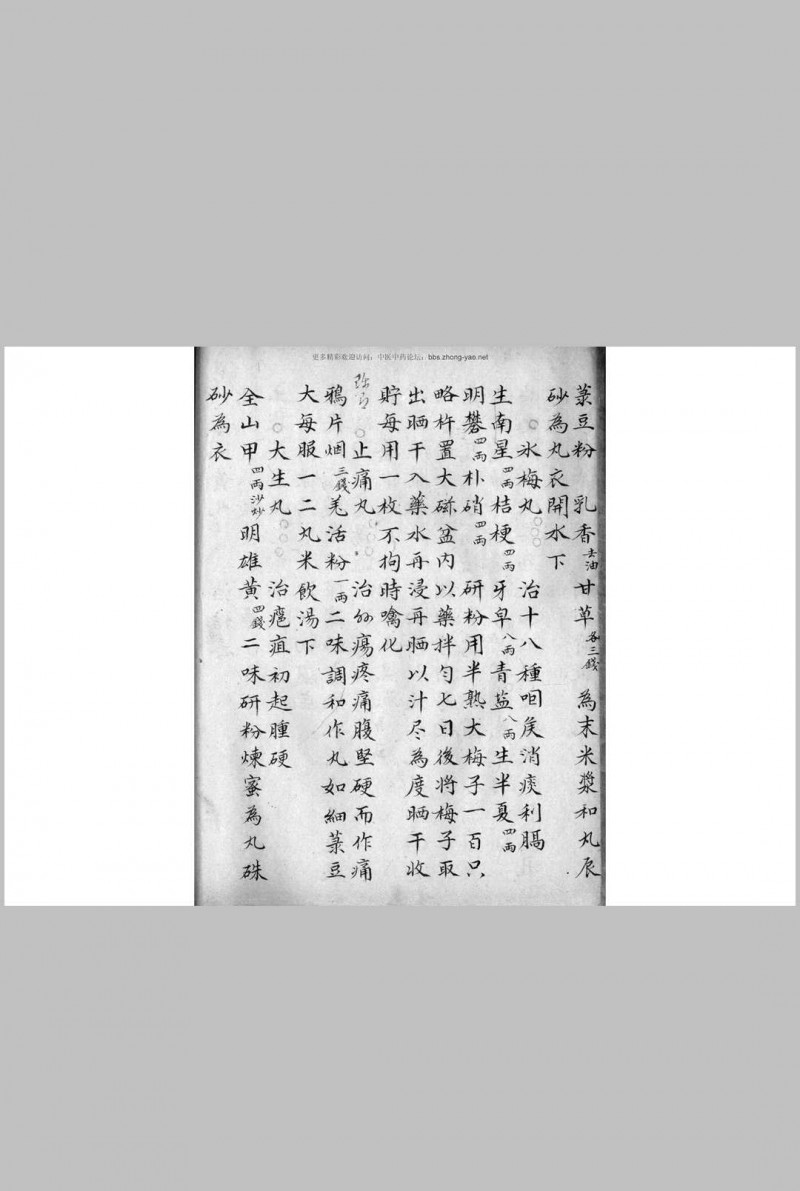 更多精彩欢迎访问：中医中药论坛：bbs.zhong-yao.net
菉豆粉 乳香去油 甘草各三錢 為末米漿和丸辰
砂為丸衣開水下
○氷梅丸○○○ 治十八種咽矦消痰利膈
生南星四兩 桔梗四兩 牙皂八兩 青盐八兩 生半夏四兩
明礬四兩 朴硝四兩 研粉用半熟大梅子一百只
略杵置大磁盆内以藥拌匀七日後将梅子取
出晒干入藥水再浸再晒以汁尽為度晒干收
貯每用一枚不拘時噙化
○止痛丸○ 治外瘍疼痛腹堅硬而作痛
鴉片烟三錢 羌活粉一兩 二味調和作丸如細菉豆
大每服一二丸米飲湯下
○大生丸○○○ 治瘪疽初起腫硬
全山甲四兩沙炒 明雄黃四錢 二味研粉煉蜜為丸硃
砂為衣